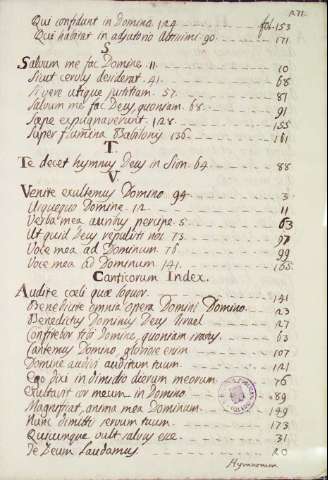 Qui confidunt in Domino. 124. fol. 153
Qui habitat in adjutorio Altissimi. 90. 171
S
Salvum me fac Domine. 11. 10
Sicut cervus desiderat. 41. 68
Si vere utique justitiam. 57. 81
Salvum me fac Deus quoniam. 68. 91
Sæpe expugnaverunt. 128. 155
Super flumina Babylonis 136. 161
T
Te decet hymnus Deus in Sion. 64. 88
V
Venite exultemus Domino. 94. 3
Usquequo Domine. 12. 11
Verba mea auribus percipe. 5. 63
Ut quid Deus repulisti nos. 73. 97
Voce mea ad Dominum. 76. 99
Voce mea ad Dominum. 141. 165
Canticorum Index.
Audite cœli quæ loquor. 141
Benedicite omnia opera Domini Domino. 23
Benedictus Dominus Deus Israel. 27
Confitebor tibi Domine, quoniam iratus. 63
Cantemus Domino, gloriose enim. 107
Domine audivi auditum tuum. 121
Ego dixi in dimidio dierum meorum. 76
Exultavit cor meum in Domino. 89
Magnificat, anima mea Dominum. 149
Nunc dimittis servum tuum. 173
Quicumque vult salvus esse. 31
Te Deum Laudamus. 20
Hymnorum